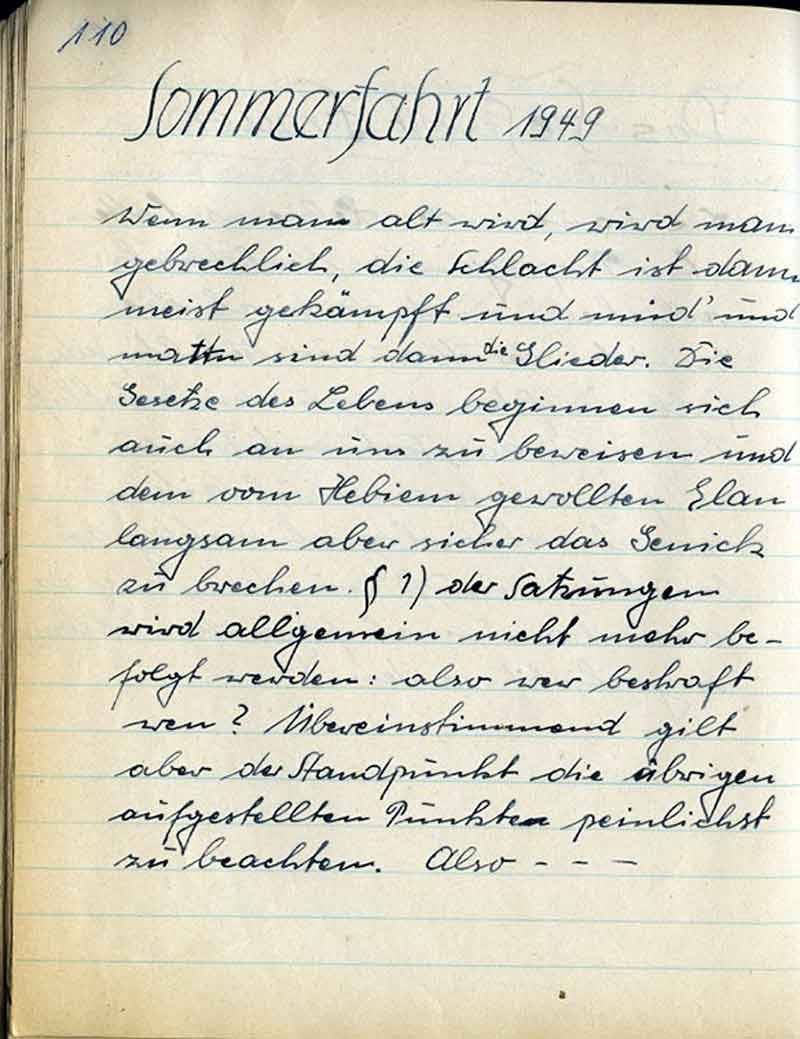 110
Sommerfahrt 1949
Wenn man alt wird, wird man
gebrechlich, die Schlacht ist dann
meist gekämpft und müd' und
matt sind dann die Glieder. Die
Gesetze des Lebens beginnen sich
auch an uns zu beweisen und
dem vom gewollten Elan
langsam aber sicher das Genick
zu brechen. § 1) der Satzungen
wird allgemein nicht mehr be-
folgt werden: also wer bestraft
wen? Übereinstimmend gilt
aber der Standpunkt die übrigen
aufgestellten Punkte peinlichst
zu beachten. Also - - -